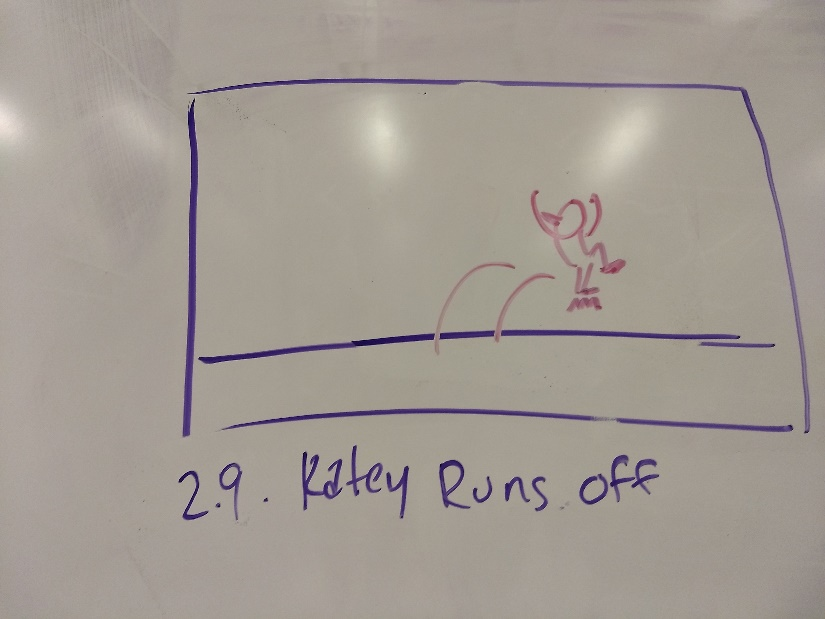 2.9. Katey Runs off